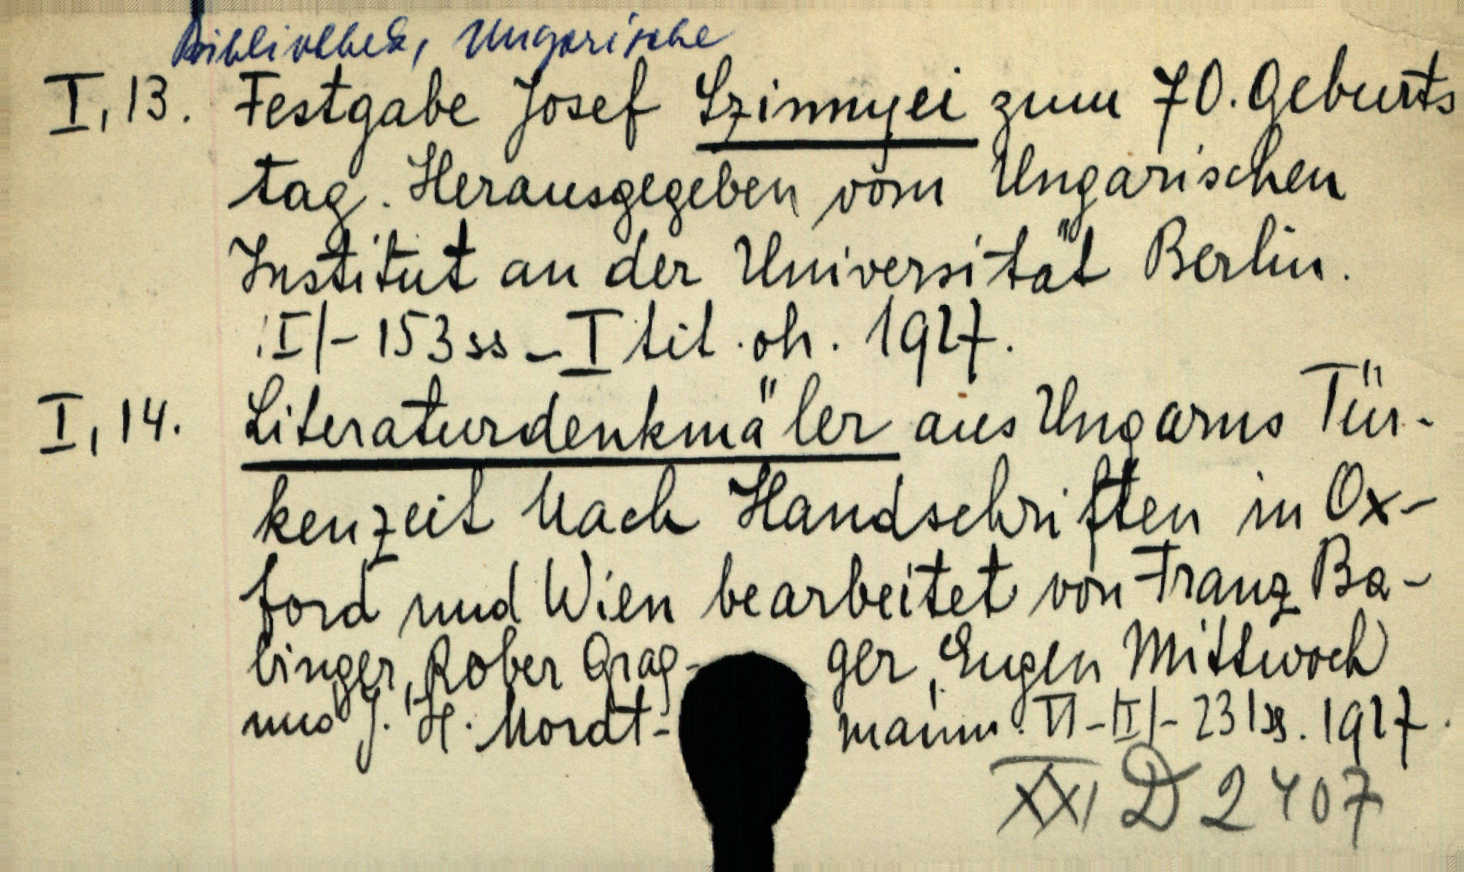 Bibliothek, Ungarische
I, 13. Festgabe Josef Szinnyei zum 70. Geburts
tag. Herausgegeben vom Ungarischen
Institut an der Universität Berlin.
/I/-153 ss - I tit. oh. 1927.
I, 14. Literaturdenkmäler aus Ungarns Tür-
kenzeit Nach Handschriften in Ox-
ford und Wien bearbeitet von Franz Ba-
binger, Rober Grag- ger, Eugen Mittwoch
und J. H. Mordt- mann. VI-/I/-231 ss. 1927.
XXI D 2407